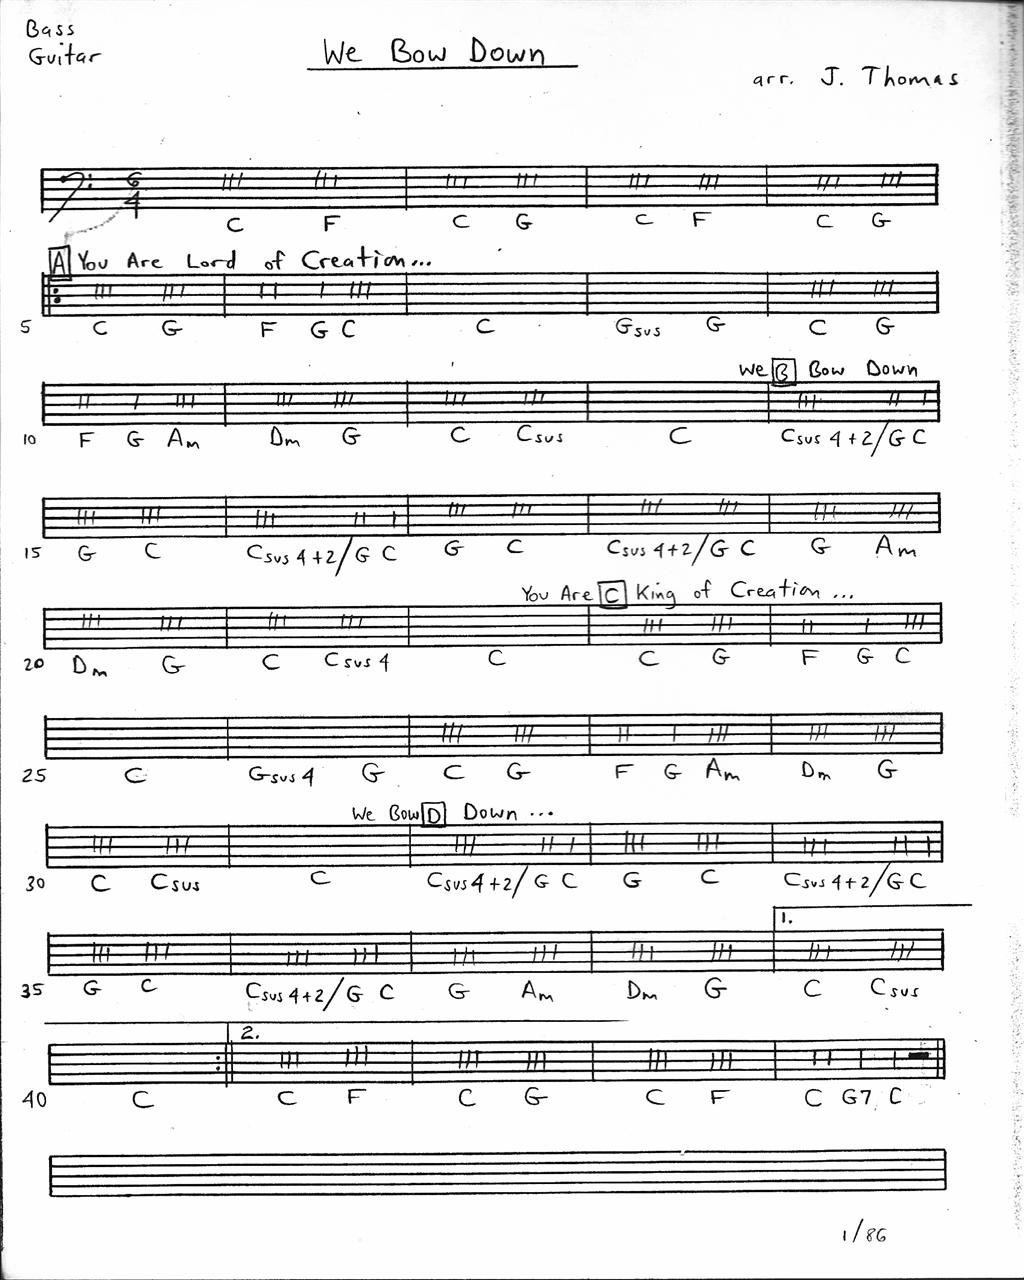 Bass
Guitar
We Bow Down
arr. J. Thomas
6
4
C F C G C F C G
A You Are Lord of Creation...
5 C G F G C C Gsus G C G
We B Bow Down
10 F G Am Dm G C Csus C Csus 4+2/G C
15 G C Csus 4+2/G C G C Csus 4+2/G C G Am
You Are C King of Creation ...
20 Dm G C Csus 4 C C G F G C
25 C Gsus 4 G C G F G Am Dm G
We Bow D Down ...
30 C Csus C Csus 4+2/G C G C Csus 4+2/G C
1.
35 G C Csus 4+2/G C G Am Dm G C Csus
2.
40 C C F C G C F C G7 C
1/86